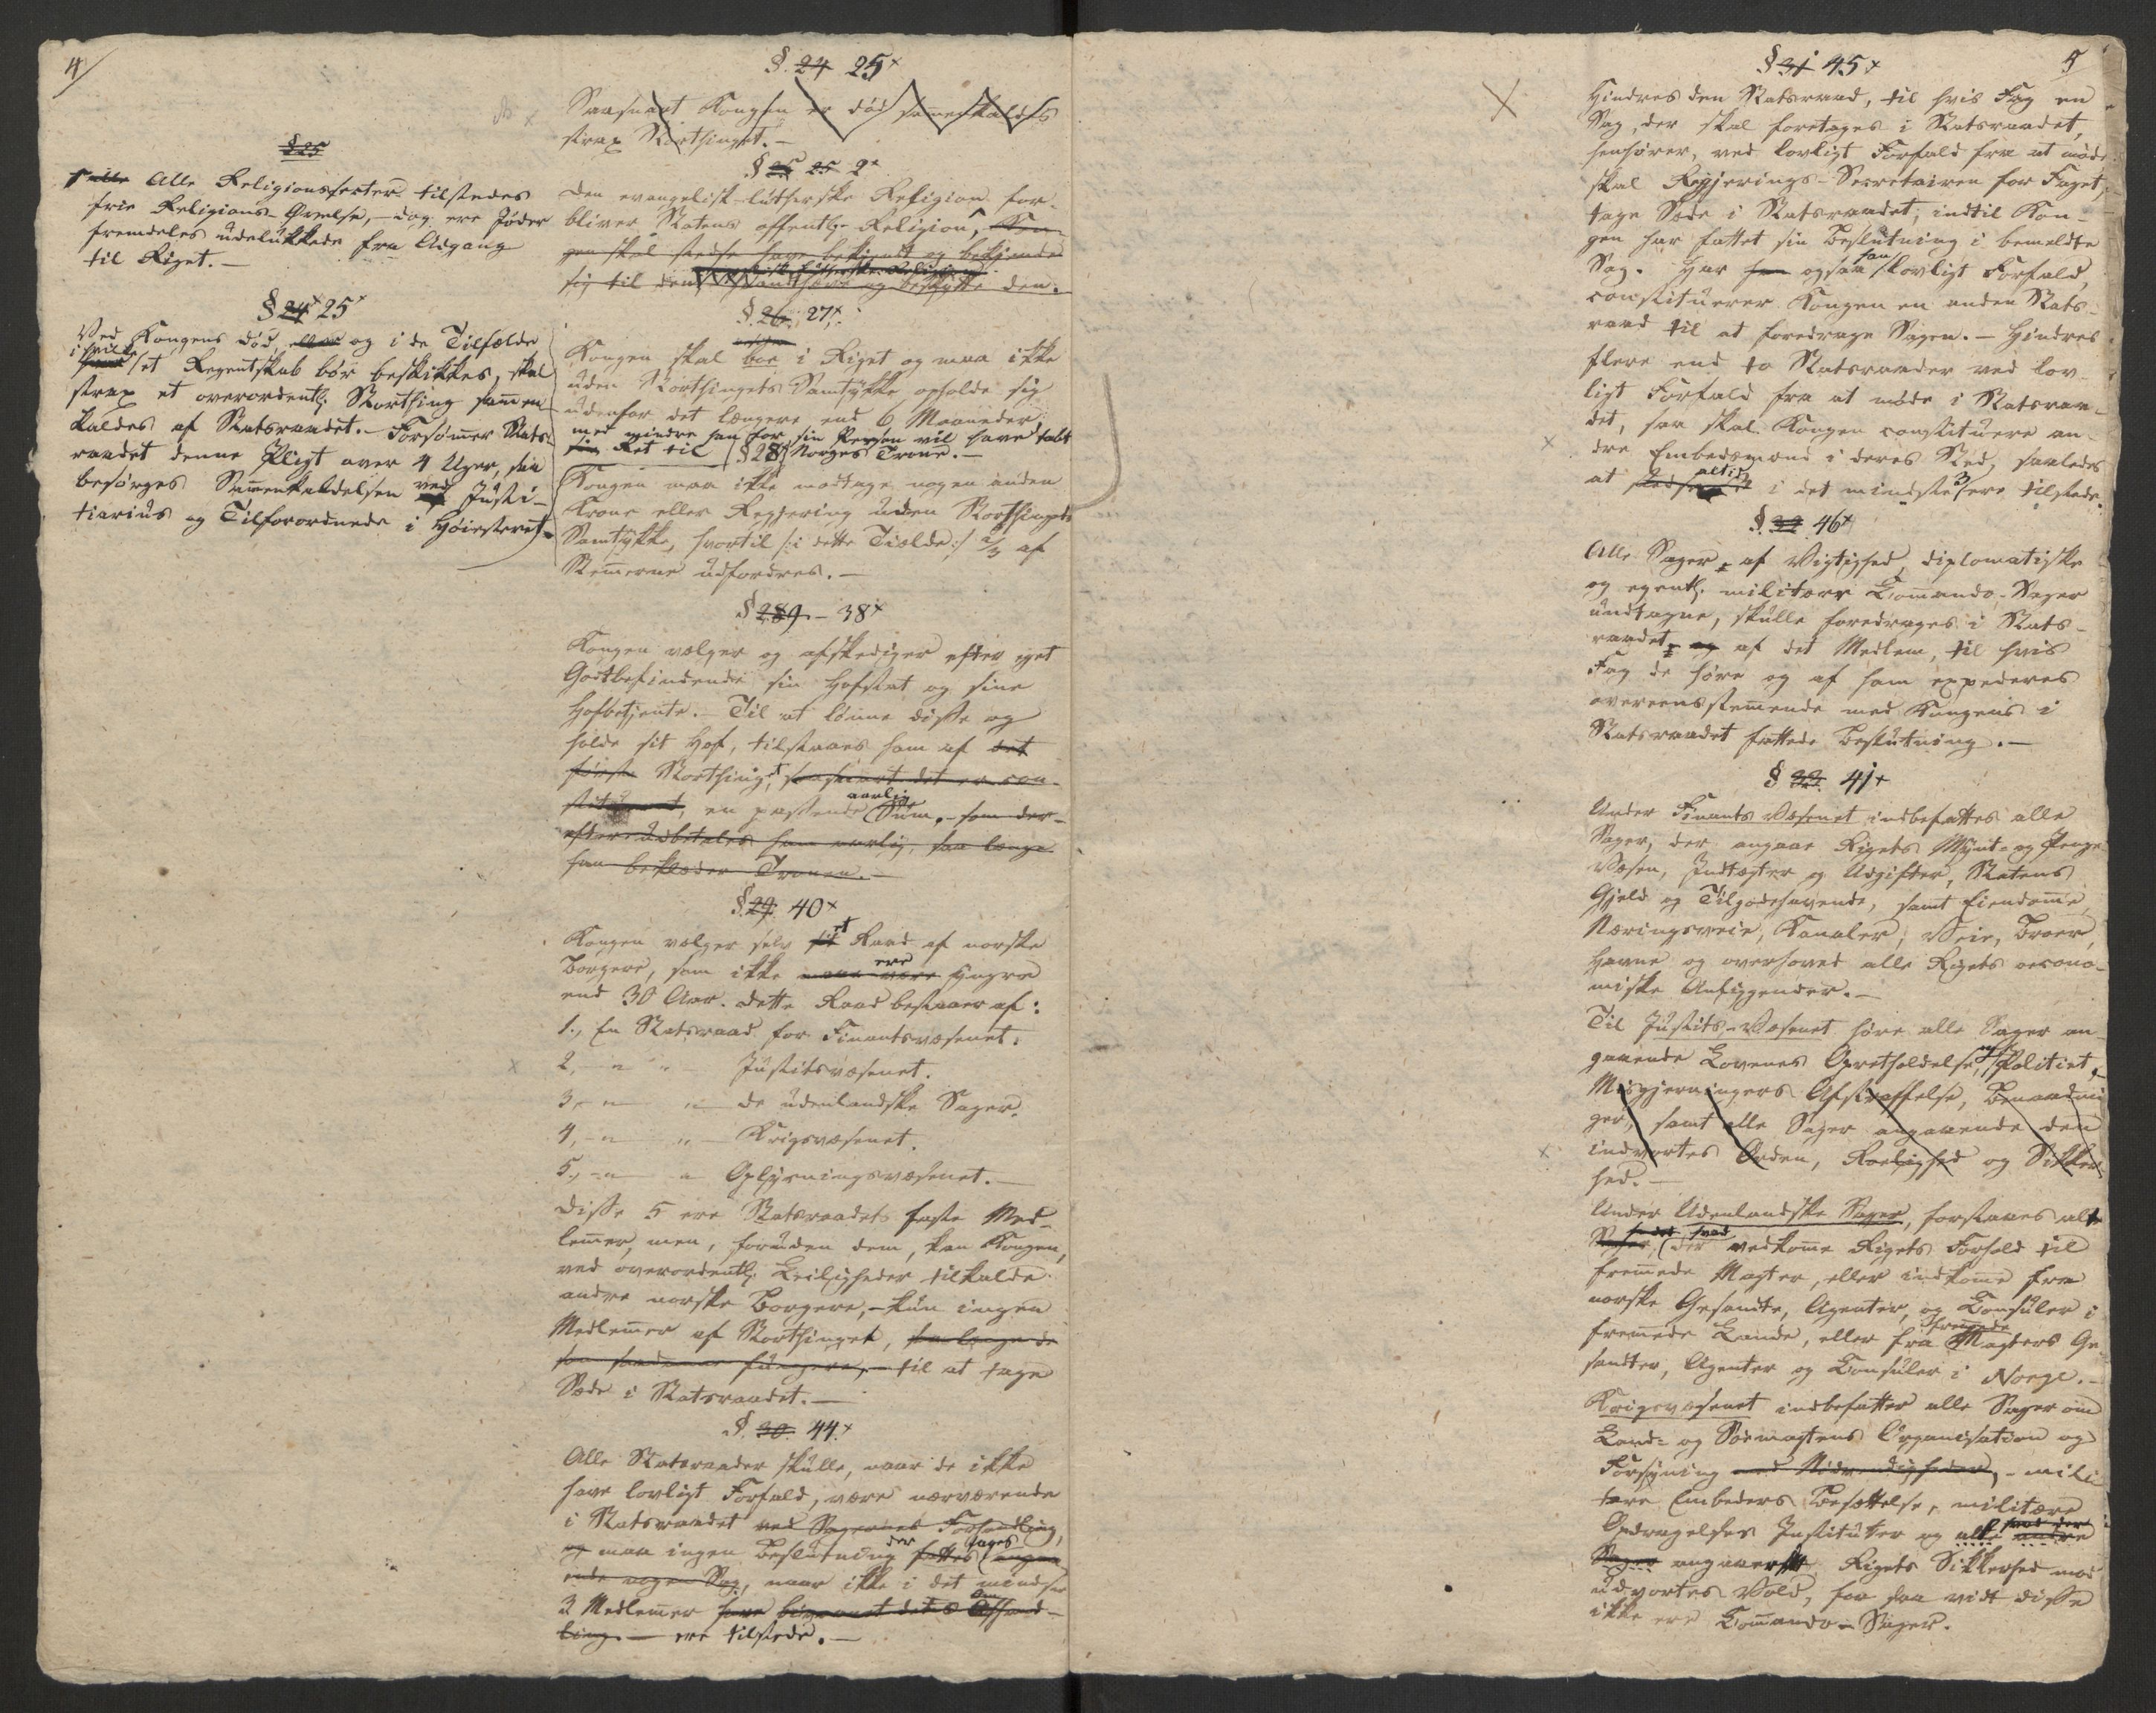 4/
§25
Alle Religionssecter tilstedes
frie Religions-Øvelse, – dog ere Jøder
fremdeles udelukkede fra Adgang
til Riget. –
§ 24 25
Ved Kongens Død, eller og i de Tilfælde
i hvilke et Regentskab bør beskikkes, skal
strax et overordentl: Storthing sammen-
kaldes af Statsraadet. – Forsømmer Stats-
raadet denne Pligt over 4 Uger, saa
besørges Sammenkaldelsen ved Justi-
tiarius og Tilforordnede i Høiesteret. –
§. 24 25
Saasnart Kongen er død sammenkaldes
strax Storthinget. –
§ 25 25 2
Den evangelisk-lutherske Religion for-
bliver Statens offentl: Religion, Kon-
gen skal stedse have bekjendt og bekjende
sig til den, haandhæve og beskytte den.
§. 26. 27
Kongen skal boe i Riget og maa ikke
uden Storthingets Samtykke opholde sig
udenfor det længere end 6 Maaneder
med mindre han for sin Person vil have tabt
sin Ret til § 28 Norges Trone. –
Kongen maa ikke modtage nogen anden
Krone eller Regjering uden Storthingets
Samtykke, hvortil /: i dette Tilælde :/ 2/3 af
Stemmerne udfordres. –
§ 289 – 38
Kongen vælger og afskediger efter eget
Godtbefindende sin Hofstat og sine
Hofbetjente. – Til at lønne disse og
holde sit Hof, tilstaaes ham af det
første Storthinget, saasnart det er con-
stitueret, en passende aarlig Sum, – som der-
efter udbetales ham aarlig, saa længe
han beklæder Tronen. –
§. 29. 40
Kongen vælger selv sit et Raad af norske
Borgere, som ikke maa være ere yngre
end 30 Aar. Dette Raad bestaaer af:
1., En Statsraad for Finantsvæsenet.
2, – " " – Justitsvæsenet.
3, – " " – de udenlandske Sager.
4, – " " – Krigsvæsenet.
5., – " " Oplysningsvæsenet. –
Disse 5 ere Statsraadets faste Med-
lemmer, men, foruden dem, kan Kongen,
ved overordentl: Leiligheder tilkalde
andre norske Borgere, – kun ingen
Medlemmer af Storthinget, saalænge de
som saadanne fungere, – til at tage
Sæde i Statsraadet. –
§. 30. 44.
Alle Statsraader skulle, naar de ikke
have lovligt Forfald, være nærværende
i Statsraadet ved Sagernes Forhandling,
og maa ingen Beslutning der fattes tages angaa-
ende nogen Sag, naar ikke i det mindste
3 Medlemmer have bivaanet dets Afhand-
ling – ere tilstede. –
5
§ 31 45
Hindres den Statsraad, til hvis Fag en
Sag, der skal foretages i Statsraadet,
henhører, ved lovligt Forfald fra at møde
skal Regjerings-Secretairen for Faget,
tage Sæde i Statsraadet, indtil Kon-
gen har fattet sin Beslutning i bemeldte
Sag. Har han ogsaa han lovligt Forfald,
constituerer Kongen en anden Stats-
raad til at foredrage Sagen. – Hindres
flere end to Statsraader ved lov-
ligt Forfald fra at møde i Statsraa-
det, saa skal Kongen constituere an-
dre Embedsmænd i deres Sted, saaledes
at altid i det mindste 3 ere tilstede.
§. 32. 46
Alle Sager af Vigtighed, diplomatiske
og egentl: militære Commando-Sager
undtagne, skulle foredrages i Stats-
raadet, og af det Medlem, til hvis
Fag de høre og af ham expederes
overeensstemmende med Kongens i
Statsraadet fattede Beslutning. –
§ 33. 41
Under Finants Væsenet indbefattes alle
Sager, der angaae Rigets Mynt- og Penge
Væsen, Indtægter og Udgifter, Statens
Gjeld og Tilgodehavende, samt Eiendomme,
Næringsveie, Kanaler, Veie, Broer,
Havne og overhoved alle Rigets oecono-
miske Anliggender. –
Til Justits-Væsenet høre alle Sager an-
gaaende Lovenes Opretholdelse, og Politiet,
Misgjerningers Afstraffelse, Benaadnin
ger, samt alle Sager angaaende den
indvortes Orden, Roelighed og Sikker-
hed. –
Under Udenlandske Sager, forstaaes alt
Sager, hvad der vedkomme Rigets Forhold til
fremmede Magter, eller indkomme fra
norske Gesandte, Agenter, og Consuler i
fremmede Lande, eller fra fremmede Magters Ge-
sandter, Agenter og Consuler i Norge. –
Krigsvæsenet indbefatter alle Sager om
Land- og Søemagtens Organisation og
Forsyning med Nødvendigheder, – mili-
tære Embeders Besættelse, militære
Opdragelses Instituter og alt hvad der andre
Sager angaaer Rigets Sikkerhed mod
udvortes Vold, for saa vidt disse
ikke ere Commando-Sager.